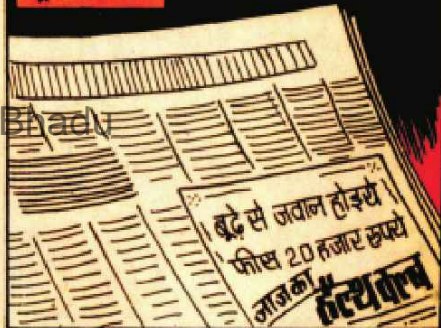 Bhadu
बूढ़े से जवान होइये
फीस 20 हजार रूपये
आज का
हैल्थ क्लब